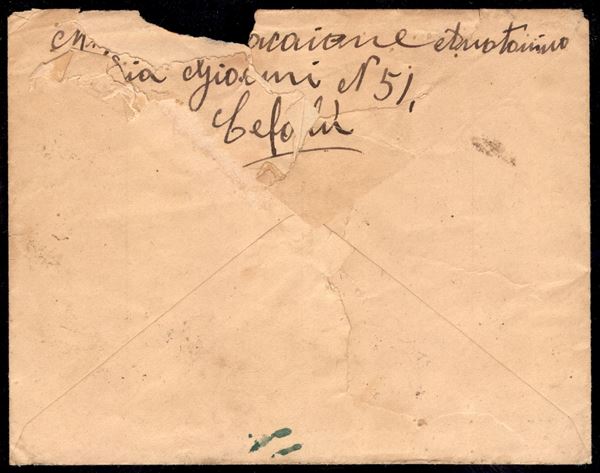 acaione Antonino
ia Gioeni N 51,
Cefalù